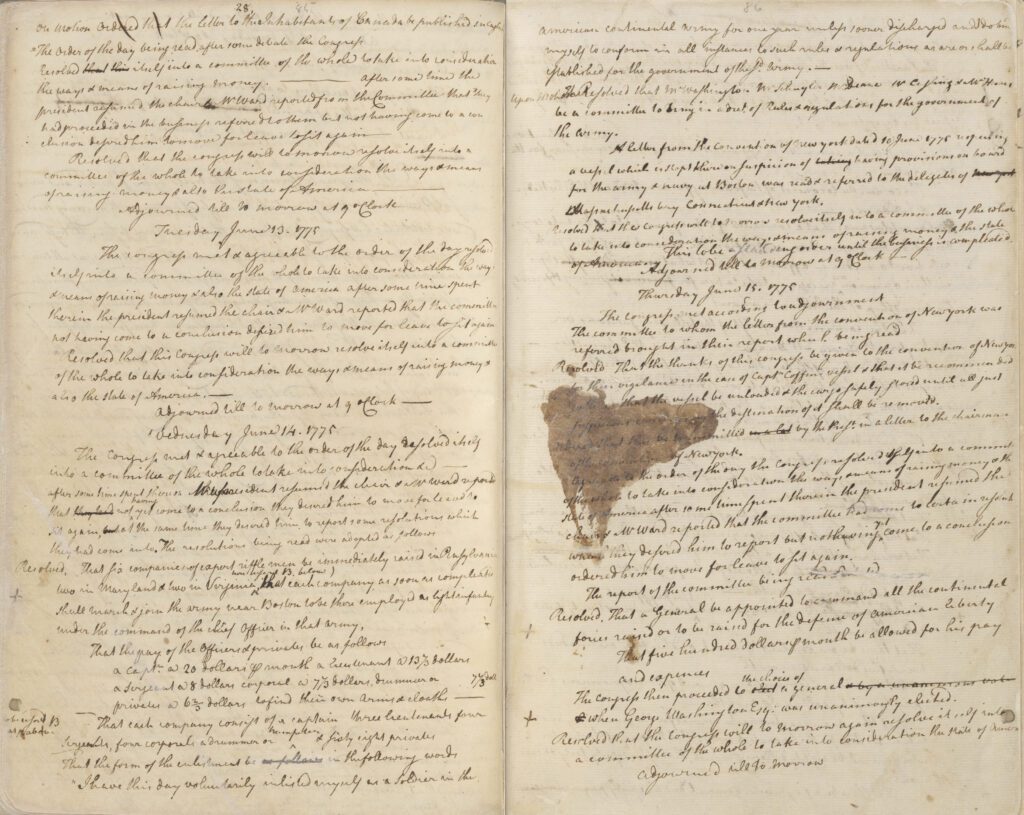 28
On motion Ordered that the letter to the Inhabitants of Canada be published
The order of the day being read, after some debate the Congress
Resolved that this itself into a committee of the whole to take into consideration
the ways & means of raising money. after some time the
president resumed the chair & Mr Ward reported from the Committee that they
had proceeded in the business referred to them but not having come to a con
clusion desired him to move for leave to sit again
Resolved that the congress will to morrow resolve itself into a
committee of the whole to take into consideration the ways & means
of raising money & also the state of America
Adjourned till to morrow at 9 oClock
Tuesday June 13. 1775
The congress met & agreeable to the order of the day resolved
itself into a committee of the whole to take into consideration the ways
& means of raising money & also the state of america after some time spent
therein the president resumed the chair & Mr Ward reported that the committee
not having come to a conclusion desired him to move for leave to sit again
Resolved that this Congress will to morrow resolve itself into a committee
of the whole to take into consideration the ways & means of raising money &
also the state of America.
adjourned till to morrow at 9 oClock
Wednesday June 14. 1775
The Congress met & agreeable to the order of the day resolved itself
into a committee of the whole to take into consideration &
after some time spent therein the president resumed the chair & Mr Ward reported
that they had having not yet come to a conclusion they desired him to move for leave to
sit again, but at the same time they desired him to report some resolutions which
they had come into. The resolutions being read were adopted as follows
Resolved, That six companies of expert rifflemen be immediately raised in Pensylvania
two in Maryland & two in Virginia, that each company as soon as compleated
shall march & join the army near Boston to be there employed as light infantry
under the command of the chief Officer in that army.
That the pay of the Officers & privates be as follows
a Captn @ 20 dollars ⅌ month a lieutenant @ 13⅓ dollars
a serjeant @ 8 dollars corporal @ 7⅓ dollars, drummer or 7⅓ doll
privates @ 6⅔ dollars to find their own arms & cloaths
That each company consist of a captain three lieutenants four
serjeants, four corporals a drummer or trumpeter & sixty eight privates
That the form of the enlistment be as follows in the following words
"I have this day voluntarily inlisted myself as a soldier in the
86
american continental army for one year unless sooner discharged and do bind
myself to conform in all instances to such rules & regulations as are or shall be
established for the government of the sd. Army.
Upon motion Resolved that Mr Washington Mr Schuyler Mr Deane Mr Cushing & Mr Hewes
be a committee to bring in a dr of Rules & regulations for the government of
the army.
A letter from the convention of New york dated 10 June 1775 respecting
a vessel which is stopt there on suspicion of having provisions on board
for the army & navy at Boston was read & referred to the delegates of new york
Massachusetts bay Connecticut & New york.
Resolved that the congress will to morrow resolve itself into a committee of the whole
to take into consideration the ways & means of raising money & the state
of America This to be a standing order until the business is compleated
Adjourned till to Morrow at 9 oClock
Thursday June 15. 1775
The Congress met according to adjournment
The committee to whom the letter from the convention of New York was
referred brought in their report which being read
Resolved That the thanks of this congress be given to the convention of New york
for their vigilance in the case of Captn Coffin's vessel & that it be recommended
that the vessel be unloaded & the cargo safely stored until all just
the destination of it shall be removed.
by the Presidt. in a letter to the chairman
of New York.
to the order of the day the Congress resolved itself into a comme
of the whole to take into consideration the ways & means of raising money & the
state of America after some time spent therein the president resumed the
chair & Mr Ward reported that the committee had come to certain resolut
which they desired him to report but not having yet come to a conclusion
ordered him to move for leave to sit again.
The report of the committee being read
Resolved, That a General be appointed to command all the continental
forces raised or to be raised for the defence of american liberty
That five hundred dollars ⅌ month be allowed for his pay
and expences
The Congress then proceeded to the choice of a general & by a unanimous vote
when George Washington Esqr. was unanimously elected.
Resolved that the Congress will to morrow again resolve itself into
a committee of the whole to take into consideration the state of America
adjourned till to morrow